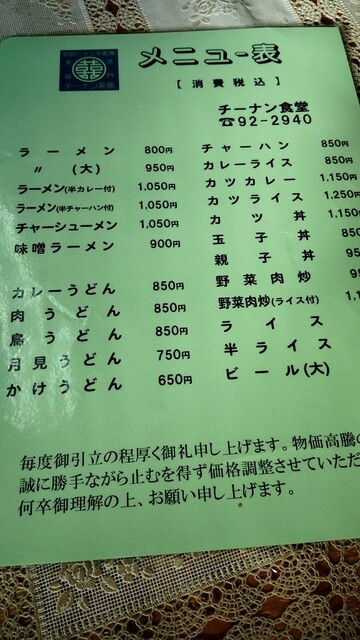 メニュー表
[消費税込]
チーナン食堂
☎92-2940
ラーメン 800円
〃 (大) 950円
ラーメン(半カレー付) 1,050円
ラーメン(半チャーハン付) 1,050円
チャーシューメン 1,050円
味噌ラーメン 900円
カレーうどん 850円
肉うどん 850円
鳥うどん 850円
月見うどん 750円
かけうどん 650円
チャーハン 850円
カレーライス 850円
カツカレー 1,150円
カツライス 1,250円
カツ丼 1,150
玉子丼 850
親子丼 95
野菜肉炒 95
野菜肉炒(ライス付) 1,1
ライス
半ライス
ビール(大)
毎度御引立の程厚く御礼申し上げます。物価高騰の
誠に勝手ながら止むを得ず価格調整させていただ
何卒御理解の上、お願い申し上げます。